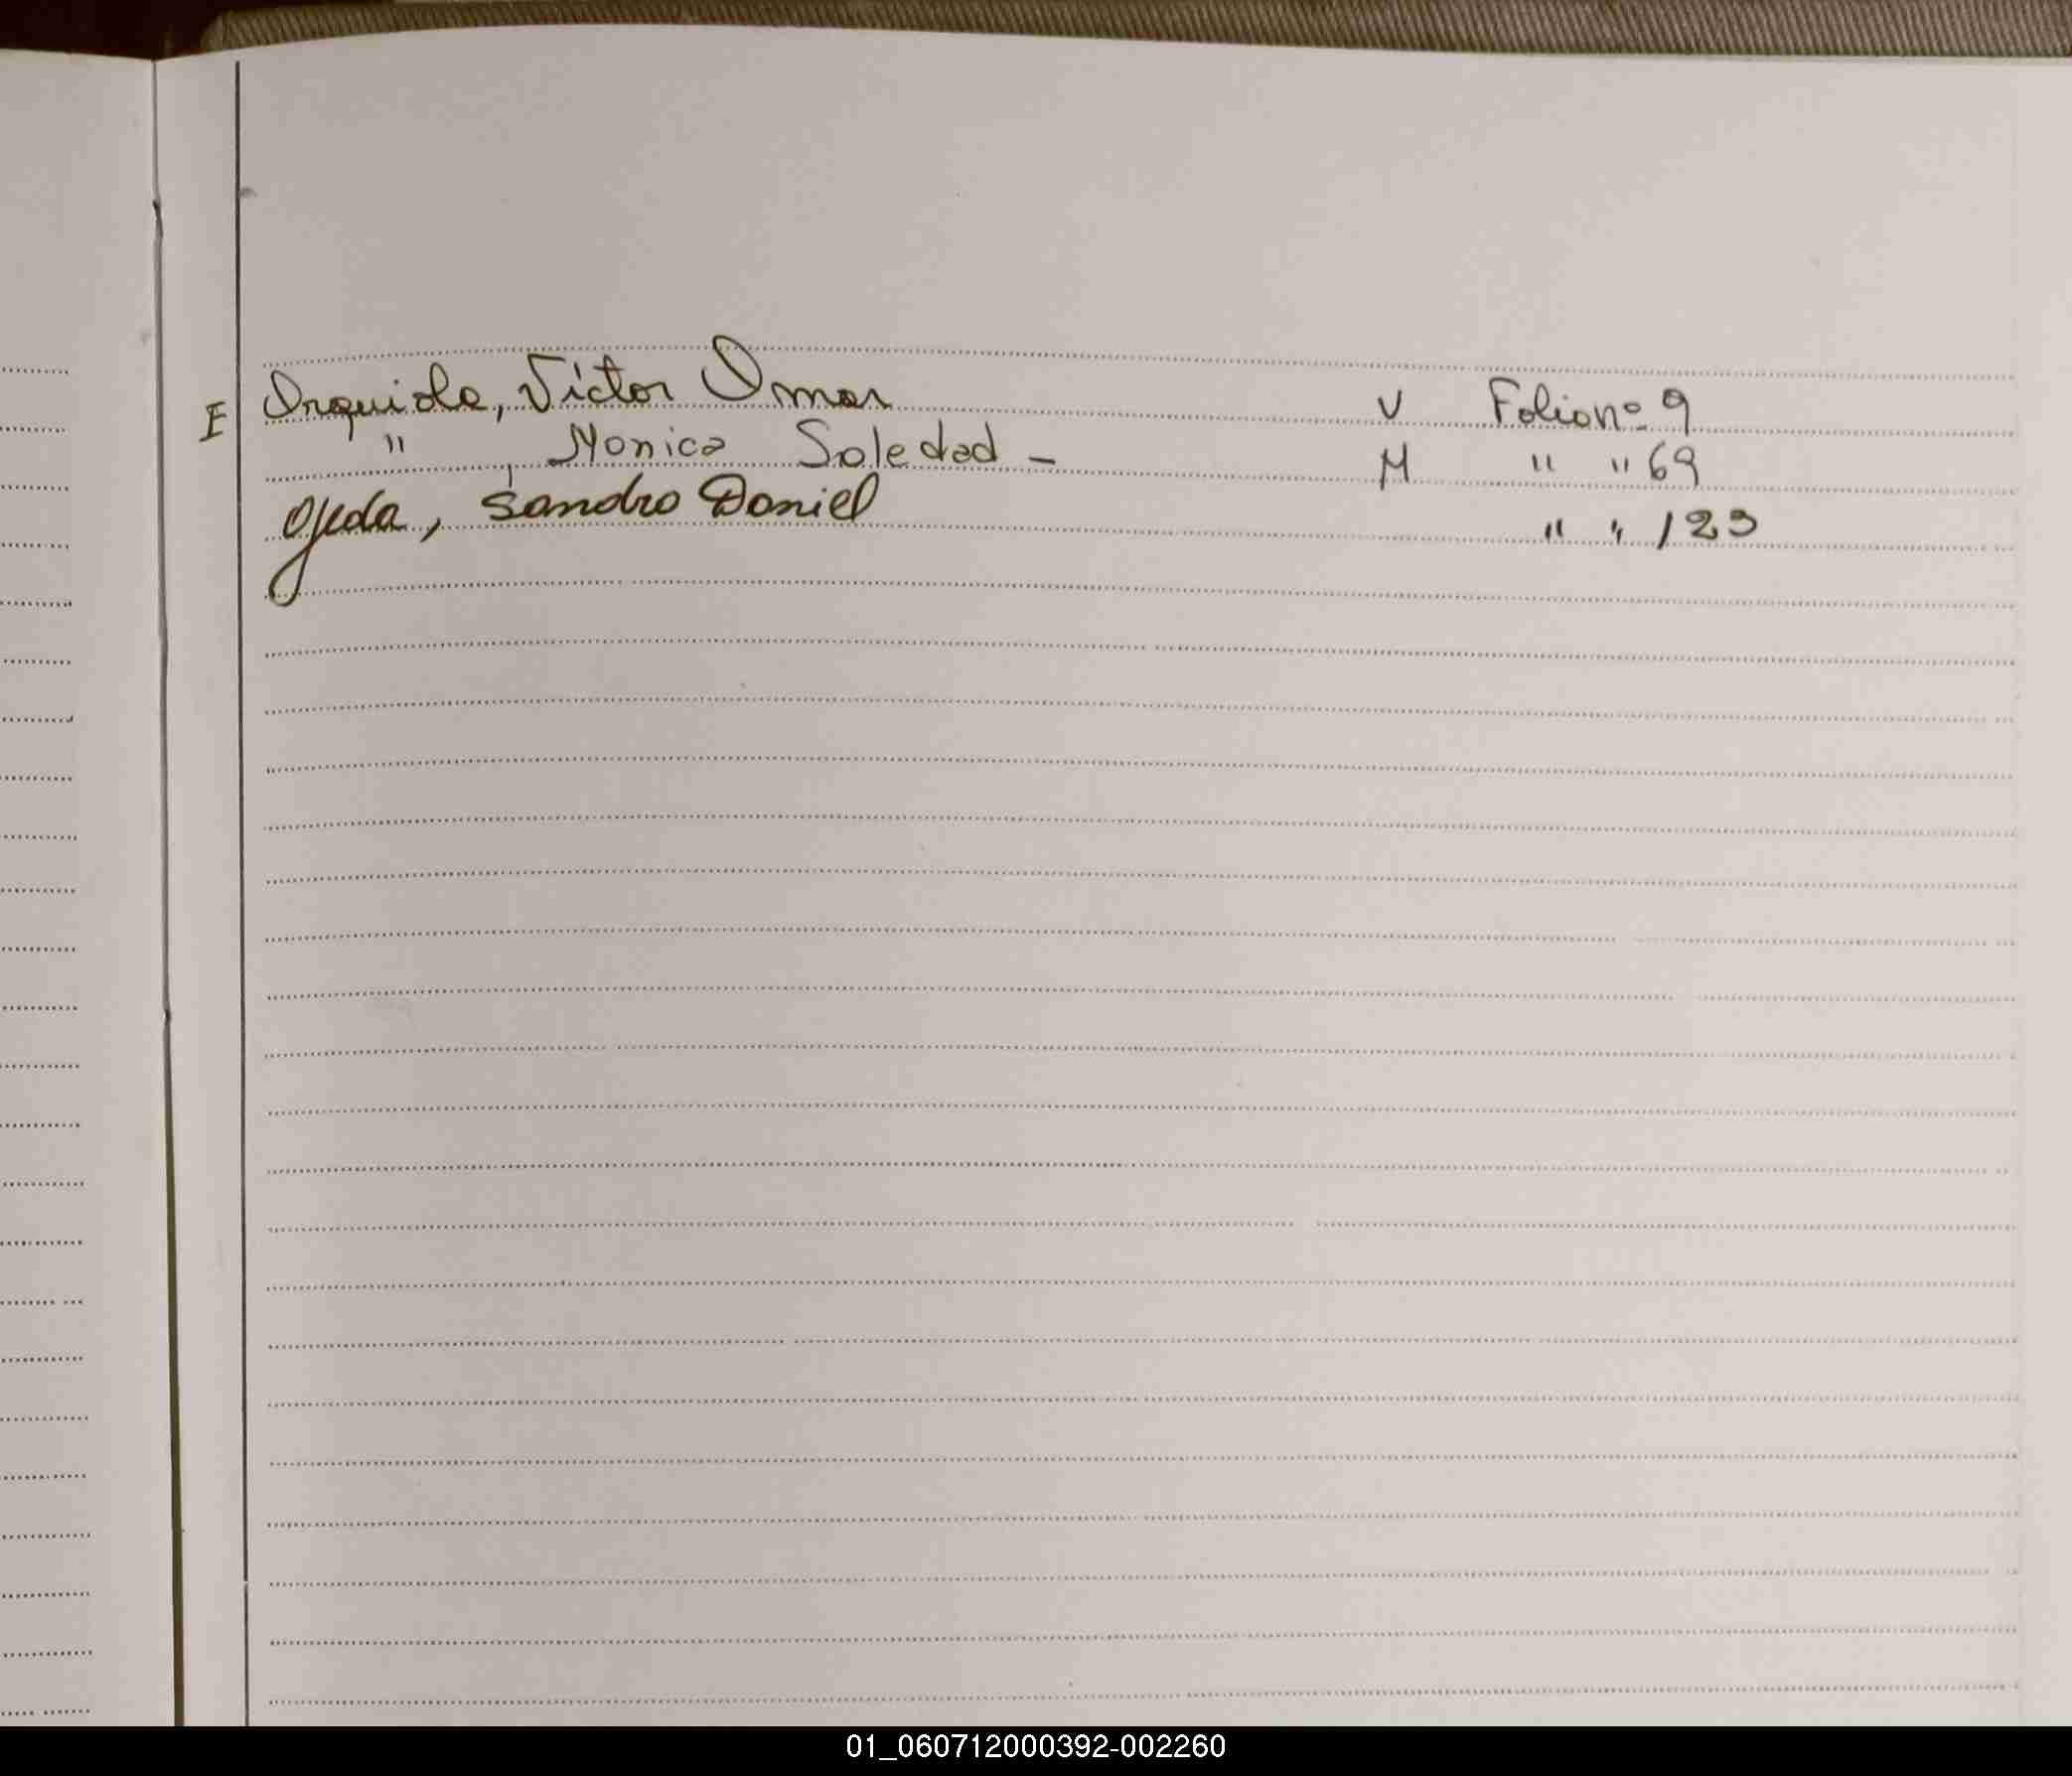 E Orquiola, Víctor Omar V Folio nº 9
" , Monica Soledad - M " " 69
Ojeda, Sandro Daniel " " 123
01_060712000392-002260